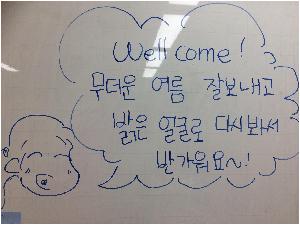 Well come!
무더운 여름 잘보내고
밝은 얼굴로 다시봐서
반가워요~!